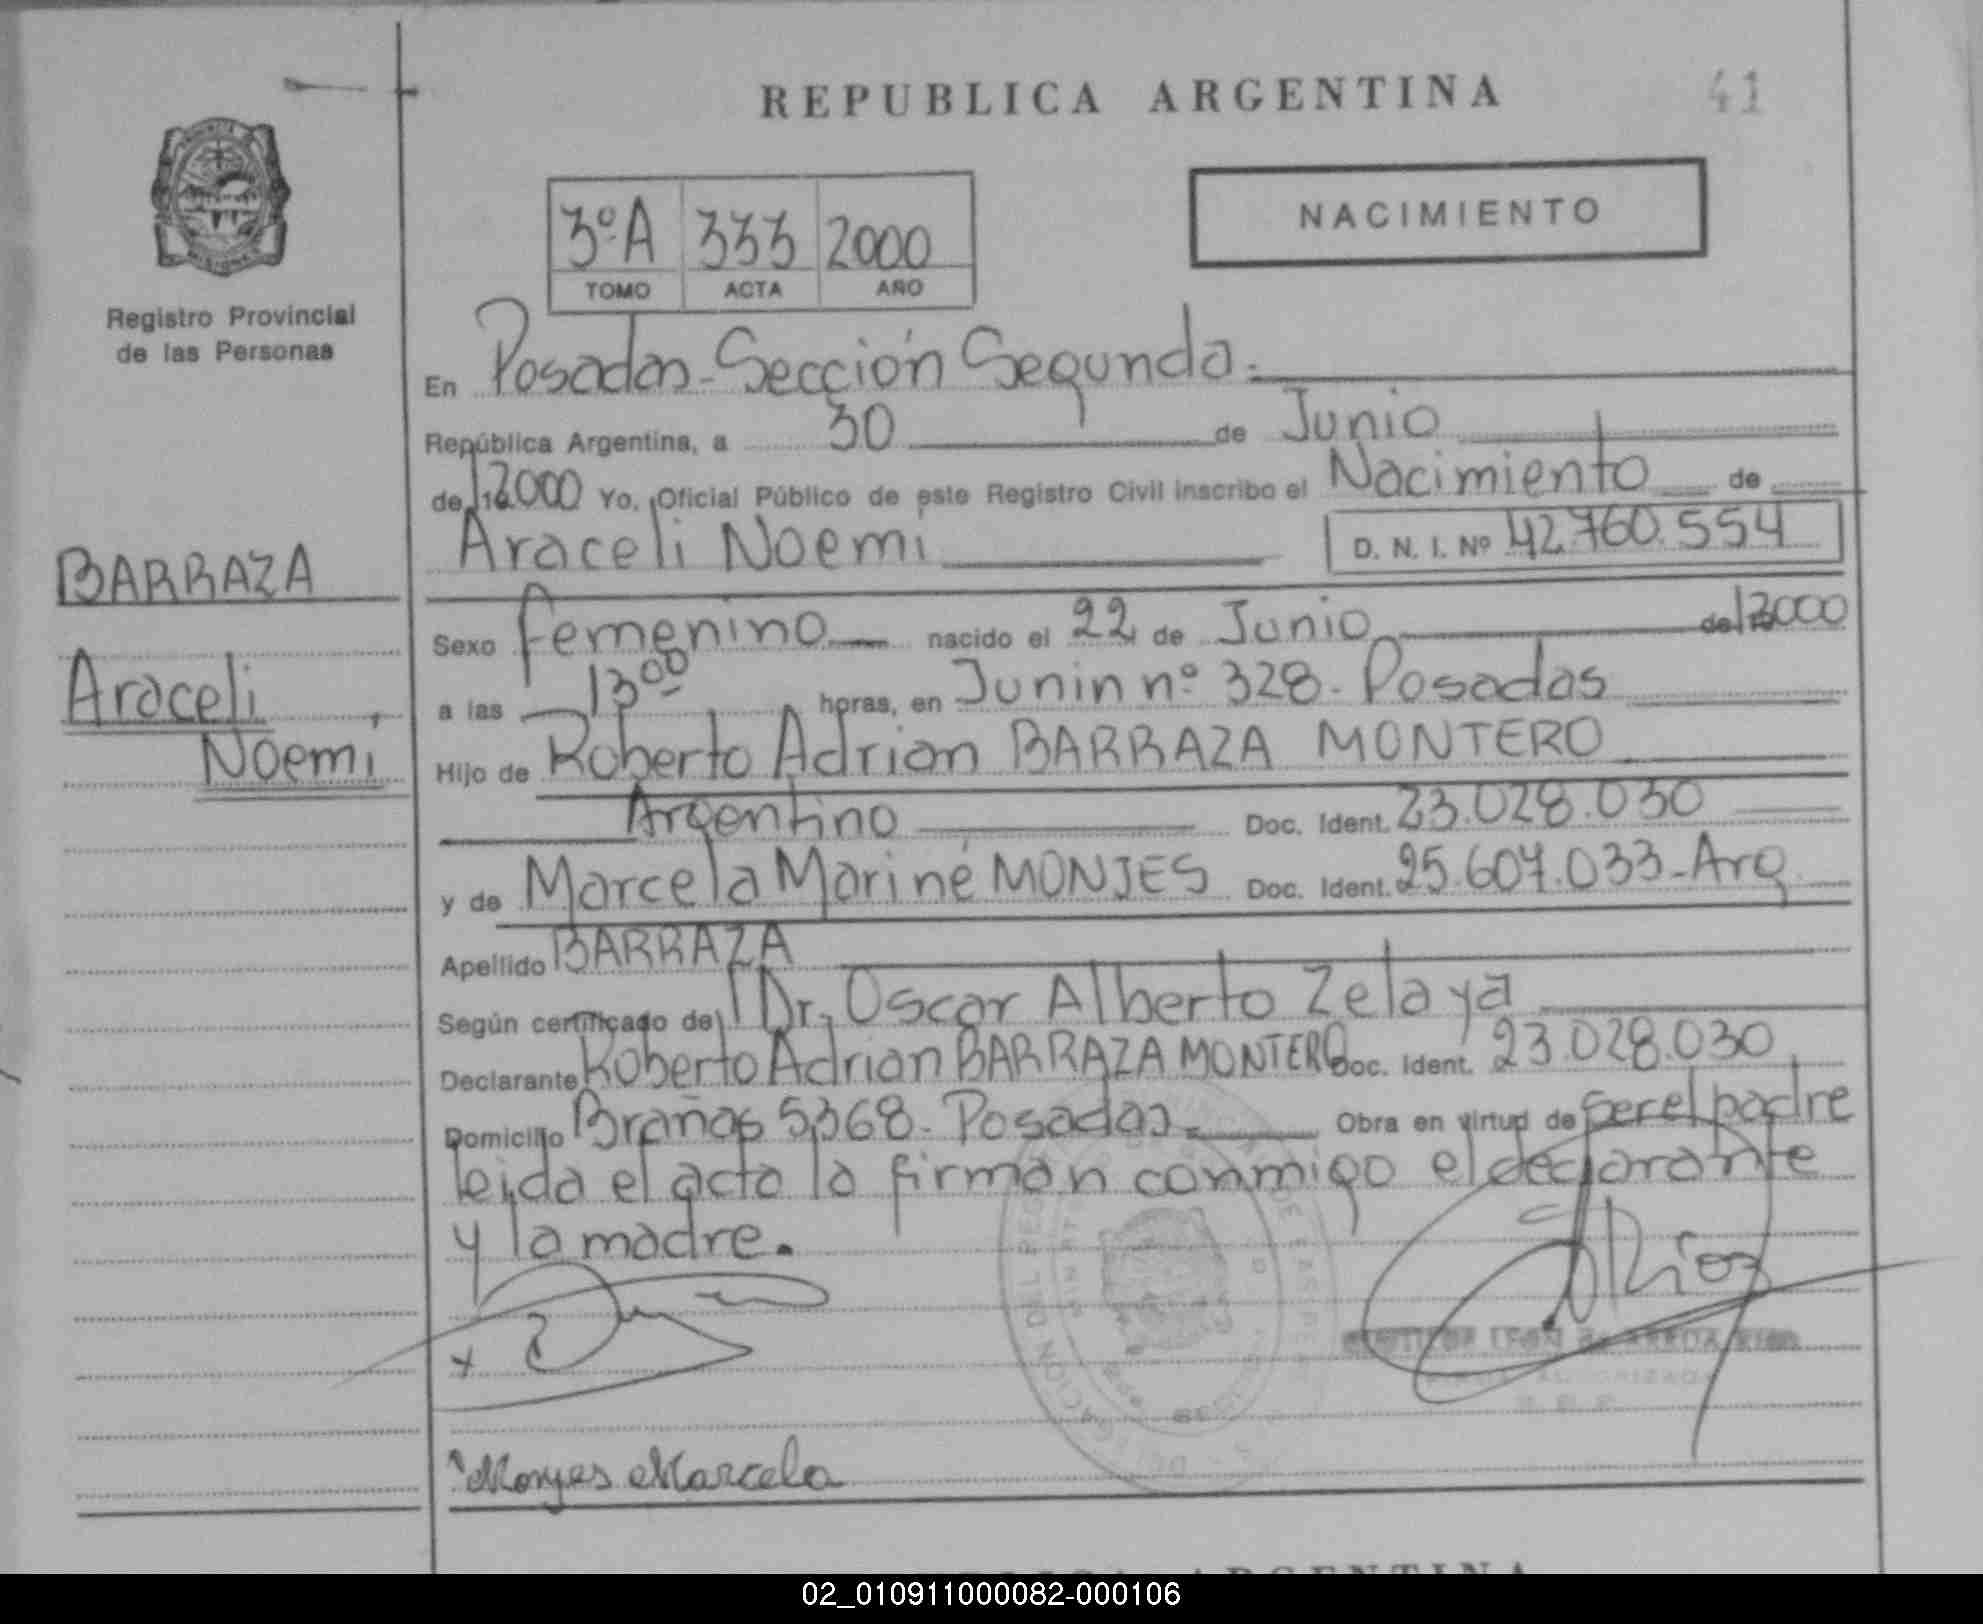 REPUBLICA ARGENTINA
41
Registro Provincial
de las Personas
3º A 333 2000
TOMO ACTA AÑO
NACIMIENTO
En Posadas-Sección Segunda.
República Argentina, a 30 de Junio
de 2000 Yo, Oficial Público de este Registro Civil inscribo el Nacimiento de
Araceli Noemi D. N. I. Nº 42.760.554
BARRAZA
Araceli
Noemi
Sexo femenino nacido el 22 de Junio de 2000
a las 13⁰⁰ horas, en Junin nº 328. Posadas
Hijo de Roberto Adrian BARRAZA MONTERO
Argentino Doc. Ident. 23.028.030
y de Marcela Mariné MONJES Doc. Ident. 25.607.033-Arg
Apellido BARRAZA
Según certificado del Dr. Oscar Alberto Zelaya
Declarante Roberto Adrian BARRAZA MONTERO Doc. Ident. 23.028.030
Domicilio Brañas 5368. Posadas. Obra en virtud de ser el padre
leida el acta la firman conmigo el declarante
y la madre.
Rios
Monjes Marcela
02_010911000082-000106